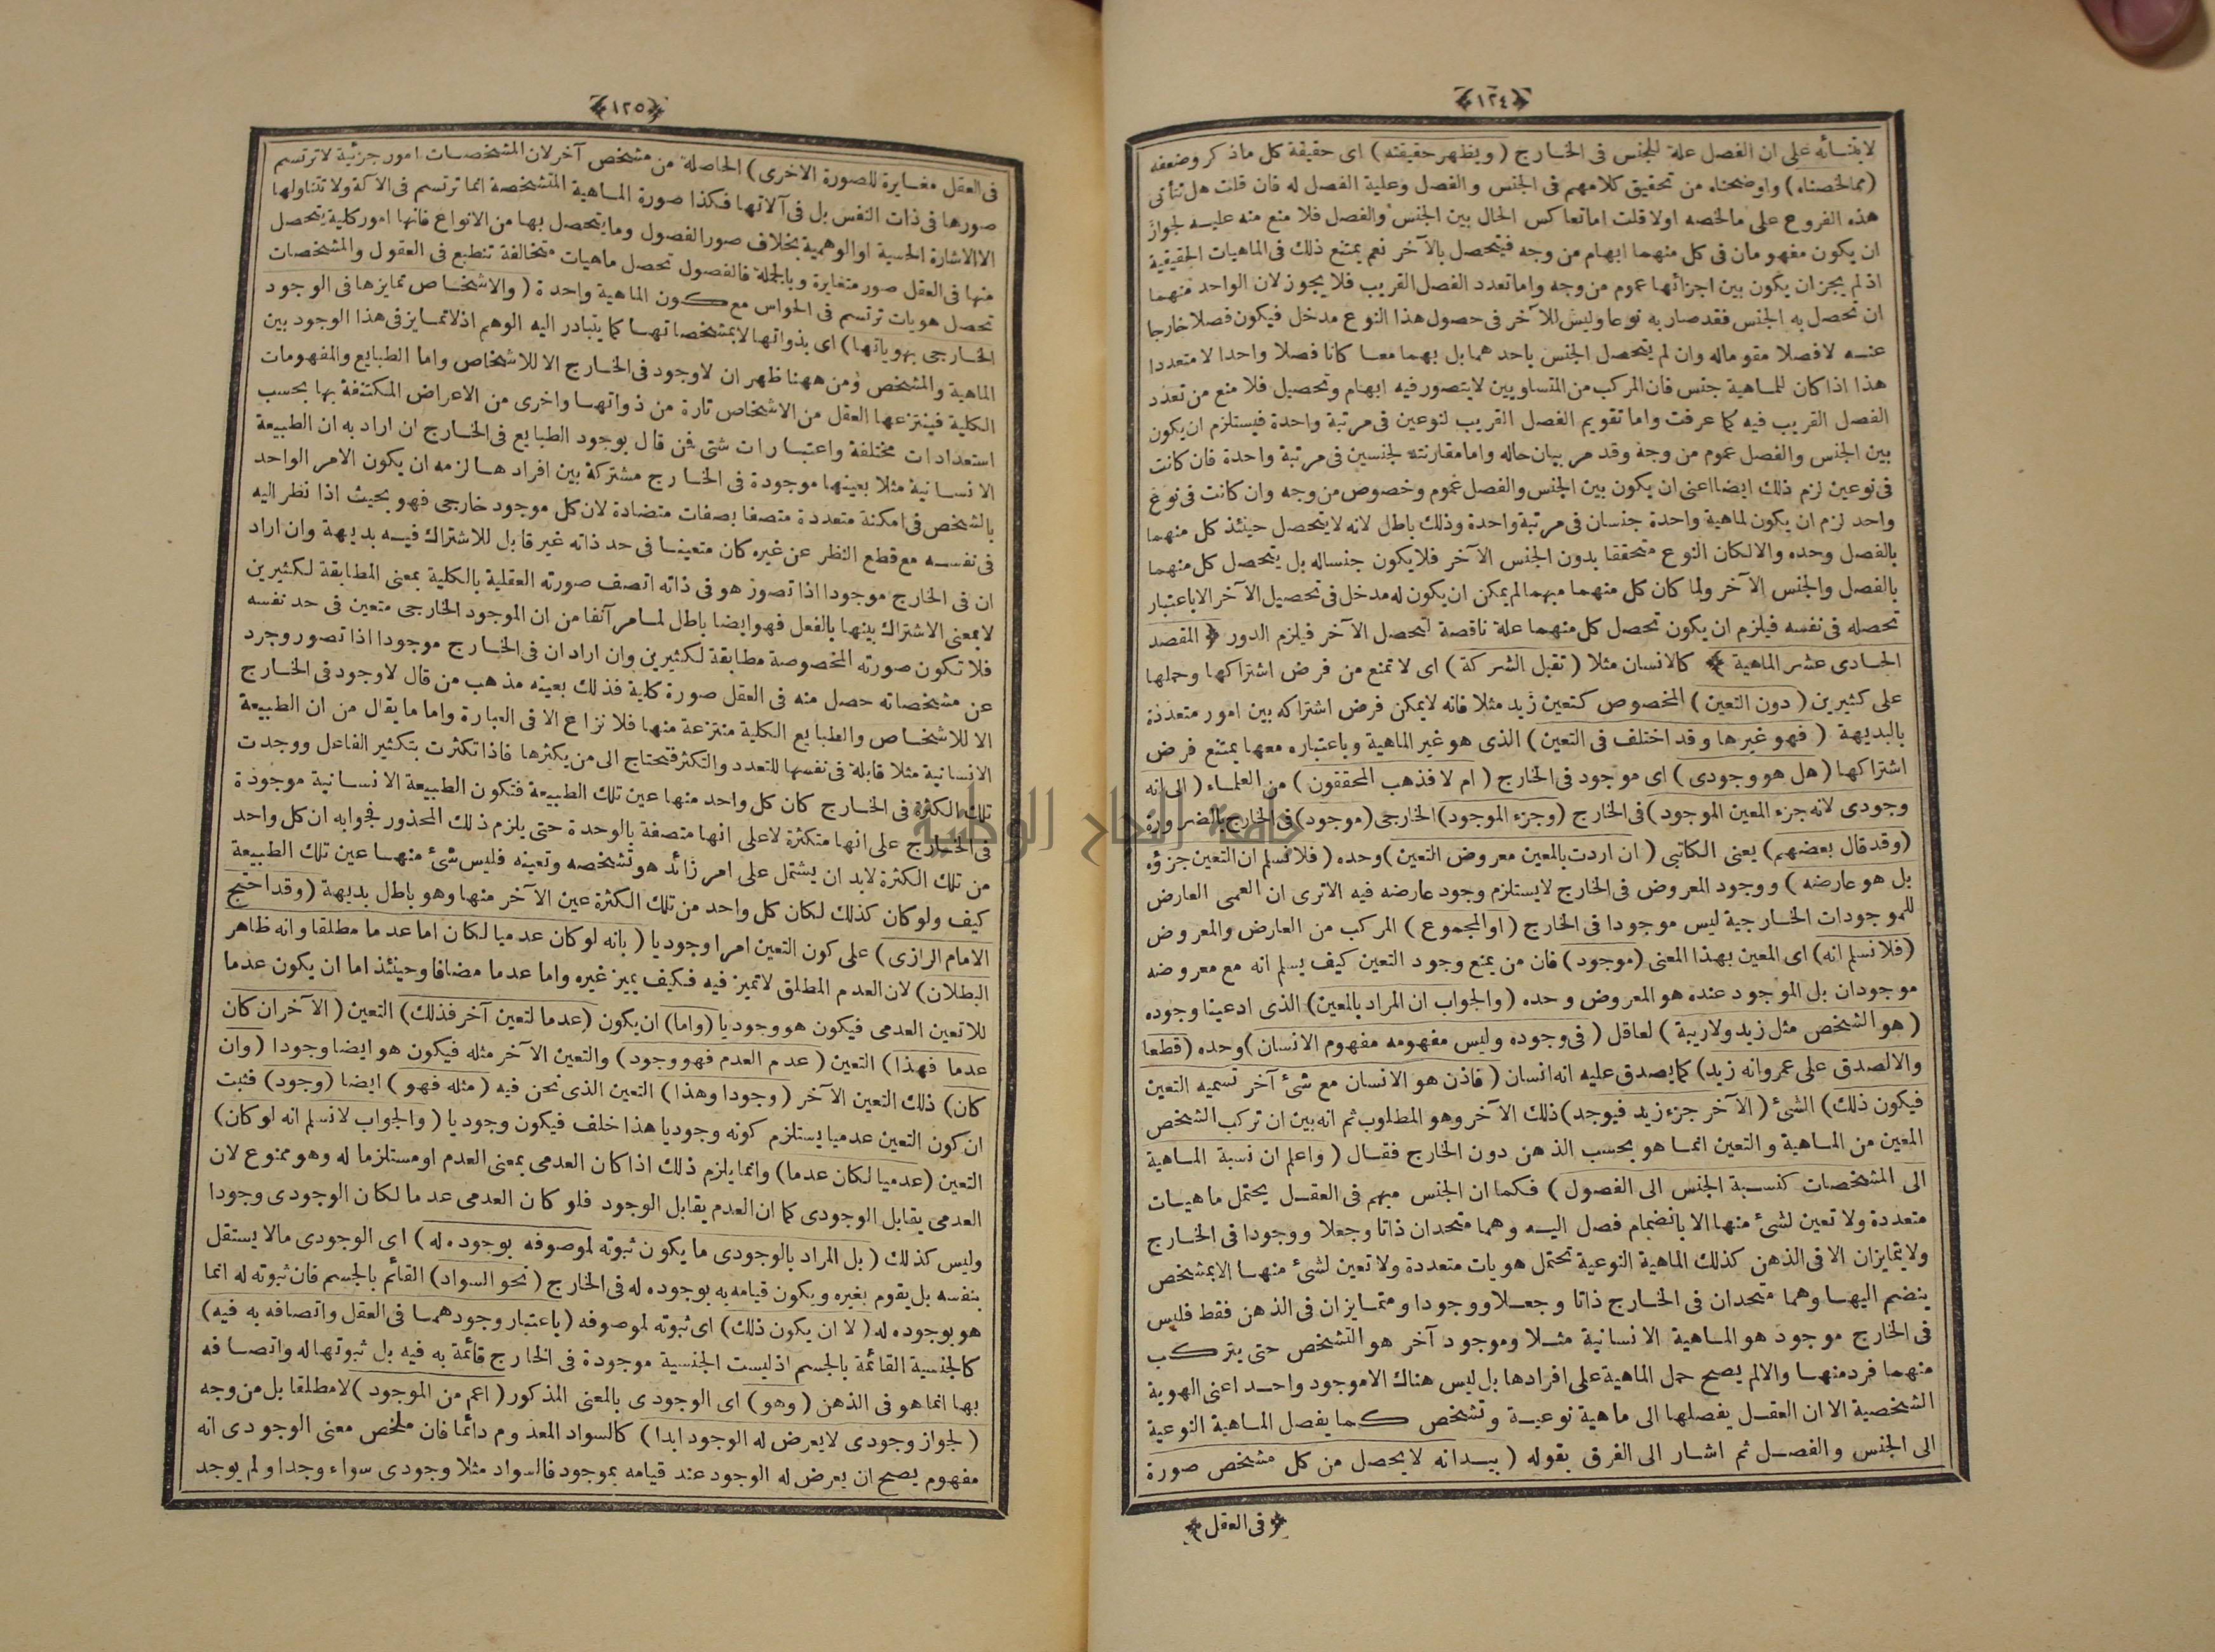 ﴿١٢٤﴾
لابتنائه على ان الفصل علة للجنس فى الخارج (ويظهر حقيقته) اى حقيقة كل ماذكر وضعفه
(مما لخصناه) واوضحناه من تحقيق كلامهم فى الجنس والفصل وعلية الفصل له فان قلت هل تتأتى
هذه الفروع على مالخصه اولا قلت اما تعاكس الحال بين الجنس والفصل فلا منع منه عليه لجواز
ان يكون مفهومان فى كل منهما ابهام من وجه فيتحصل بالآخر نعم يمتنع ذلك فى الماهيات الحقيقية
اذ لم يجز ان يكون بين اجزائها عموم من وجه واما تعدد الفصل القريب فلا يجوز لان الواحد منهما
ان تحصل به الجنس فقد صار به نوعا وليس للآخر فى حصول هذا النوع مدخل فيكون فصلا خارجا
عنه لا فصلا مقوماله وان لم يتحصل الجنس باحدهما بل بهما معا كانا فصلا واحدا لا متعددا
هذا اذا كان للماهية جنس فان المركب من المتساويين لايتصور فيه ابهام وتحصيل فلا منع من تعدد
الفصل القريب فيه كما عرفت واما تقويم الفصل القريب لنوعين فى مرتبة واحدة فيستلزم ان يكون
بين الجنس والفصل عموم من وجه وقد مر بيان حاله واما مقارنته لجنسين فى مرتبة واحدة فان كانت
فى نوعين لزم ذلك ايضا اعنى ان يكون بين الجنس والفصل عموم وخصوص من وجه وان كانت فى نوع
واحد لزم ان يكون لماهية واحدة جنسان فى مرتبة واحدة وذلك باطل لانه لايتحصل حينئذ كل منهما
بالفصل وحده والا لكان النوع متحققا بدون الجنس الآخر فلا يكون جنساله بل يتحصل كل منهما
بالفصل والجنس الآخر ولما كان كل منهما مبهما لم يمكن ان يكون له مدخل فى تحصيل الآخر الا باعتبار
تحصله فى نفسه فيلزم ان يكون تحصل كل منهما علة ناقصة لتحصل الآخر فيلزم الدور ﴿ المقصد
الحادى عشر الماهية ﴾ كالانسان مثلا (تقبل الشركة) اى لا تمنع من فرض اشتراكها وحملها
على كثيرين (دون التعين) المخصوص كتعين زيد مثلا فانه لايمكن فرض اشتراكه بين امور متعددة
بالبديهة (فهو غيرها وقد اختلف فى التعين) الذى هو غير الماهية وباعتباره معها يمتنع فرض
اشتراكها (هل هو وجودى) اى موجود فى الخارج (ام لا فذهب المحققون) من العلماء (الى انه
وجودى لانه جزء المعين الموجود) فى الخارج (وجزء الموجود) الخارجى (موجود) فى الخارج بالضرورة
(وقد قال بعضهم) يعنى الكاتبى (ان اردت بالمعين معروض التعين) وحده (فلا نسلم ان التعين جزؤه
بل هو عارضه) ووجود المعروض فى الخارج لايستلزم وجود عارضه فيه الاترى ان العمى العارض
للموجودات الخارجية ليس موجودا فى الخارج (او المجموع) المركب من العارض والمعروض
(فلا نسلم انه) اى المعين بهذا المعنى (موجود) فان من يمنع وجود التعين كيف يسلم انه مع معروضه
موجودان بل الموجود عنده هو المعروض وحده (والجواب ان المراد بالمعين) الذى ادعينا وجوده
(هو الشخص مثل زيد ولاريبة) لعاقل (فى وجوده وليس مفهومه مفهوم الانسان) وحده (قطعا
والا لصدق على عمرو انه زيد) كما يصدق عليه انه انسان (فاذن هو الانسان مع شئ آخر نسميه التعين
فيكون ذلك) الشئ (الآخر جزء زيد فيوجد) ذلك الآخر وهو المطلوب ثم انه بين ان تركب الشخص
المعين من الماهية والتعين انما هو بحسب الذهن دون الخارج فقال (واعلم ان نسبة الماهية
الى المشخصات كنسبة الجنس الى الفصول) فكما ان الجنس مبهم فى العقل يحتمل ماهيات
متعددة ولا تعين لشئ منها الا بانضمام فصل اليه وهما متحدان ذاتا وجعلا ووجودا فى الخارج
ولايتمايزان الا فى الذهن كذلك الماهية النوعية تحتمل هويات متعددة ولا تعين لشئ منها الا بمشخص
ينضم اليها وهما متحدان فى الخارج ذاتا وجعلا ووجودا ومتمايزان فى الذهن فقط فليس
فى الخارج موجود هو الماهية الانسانية مثلا وموجود آخر هو التشخص حتى يتركب
منهما فرد منها والا لم يصح حمل الماهية على افرادها بل ليس هناك الا موجود واحد اعنى الهوية
الشخصية الا ان العقل يفصلها الى ماهية نوعية وتشخص كما يفصل الماهية النوعية
الى الجنس والفصل ثم اشار الى الفرق بقوله (بيد انه لايحصل من كل مشخص صورة
﴿ فى العقل ﴾
﴿١٢٥﴾
فى العقل مغايرة للصورة الاخرى) الحاصلة من مشخص آخر لان المشخصات امور جزئية لا ترتسم
صورها فى ذات النفس بل فى آلاتها فكذا صورة الماهية المتشخصة انما ترتسم فى الآلة ولا تتناولها
الا الاشارة الحسية او الوهمية بخلاف صور الفصول وما يتحصل بها من الانواع فانها امور كلية يتحصل
منها فى العقل صور متغايرة وبالجملة فالفصول تحصل ماهيات متخالفة تنطبع فى العقول والمشخصات
تحصل هويات ترتسم فى الحواس مع كون الماهية واحدة (والاشخاص تمايزها فى الوجود
الخارجى بهوياتها) اى بذواتها لا بمشخصاتها كما يتبادر اليه الوهم اذ لا تمايز فى هذا الوجود بين
الماهية والمشخص ومن ههنا ظهر ان لا وجود فى الخارج الا للاشخاص واما الطبايع والمفهومات
الكلية فينتزعها العقل من الاشخاص تارة من ذواتها واخرى من الاعراض المكتنفة بها بحسب
استعدادات مختلفة واعتبارات شتى فمن قال بوجود الطبايع فى الخارج ان اراد به ان الطبيعة
الانسانية مثلا بعينها موجودة فى الخارج مشتركة بين افرادها لزمه ان يكون الامر الواحد
بالشخص فى امكنة متعددة متصفا بصفات متضادة لان كل موجود خارجى فهو بحيث اذا نظر اليه
فى نفسه مع قطع النظر عن غيره كان متعينا فى حد ذاته غير قابل للاشتراك فيه بديهة وان اراد
ان فى الخارج موجودا اذا تصور هو فى ذاته اتصف صورته العقلية بالكلية بمعنى المطابقة لكثيرين
لا بمعنى الاشتراك بينها بالفعل فهو ايضا باطل لما مر آنفا من ان الموجود الخارجى متعين فى حد نفسه
فلا تكون صورته المخصوصة مطابقة لكثيرين وان اراد ان فى الخارج موجودا اذا تصور وجرد
عن مشخصاته حصل منه فى العقل صورة كلية فذلك بعينه مذهب من قال لا وجود فى الخارج
الا للاشخاص والطبايع الكلية منتزعة منها فلا نزاع الا فى العبارة واما ما يقال من ان الطبيعة
الانسانية مثلا قابلة فى نفسها للتعدد والتكثر فتحتاج الى من يكثرها فاذا تكثرت بتكثير الفاعل ووجدت
تلك الكثرة فى الخارج كان كل واحد منها عين تلك الطبيعة فتكون الطبيعة الانسانية موجودة
فى الخارج على انها متكثرة لا على انها متصفة بالوحدة حتى يلزم ذلك المحذور فجوابه ان كل واحد
من تلك الكثرة لابد ان يشتمل على امر زائد هو تشخصه وتعينه فليس شئ منها عين تلك الطبيعة
كيف ولو كان كذلك لكان كل واحد من تلك الكثرة عين الآخر منها وهو باطل بديهة (وقد احتج
الامام الرازى) على كون التعين امرا وجوديا (بانه لو كان عدميا لكان اما عدما مطلقا وانه ظاهر
البطلان) لان العدم المطلق لا تميز فيه فكيف يميز غيره واما عدما مضافا وحينئذ اما ان يكون عدما
للاتعين العدمى فيكون هو وجوديا (واما) ان يكون (عدما لتعين آخر فذلك) التعين (الآخر ان كان
عدما فهذا) التعين (عدم العدم فهو وجود) والتعين الآخر مثله فيكون هو ايضا وجودا (وان
كان) ذلك التعين الآخر (وجودا وهذا) التعين الذى نحن فيه (مثله فهو) ايضا (وجود) فثبت
ان كون التعين عدميا يستلزم كونه وجوديا هذا خلف فيكون وجوديا (والجواب لا نسلم انه لو كان)
التعين (عدميا لكان عدما) وانما يلزم ذلك اذا كان العدمى بمعنى العدم او مستلزما له وهو ممنوع لان
العدمى يقابل الوجودى كما ان العدم يقابل الوجود فلو كان العدمى عدما لكان الوجودى وجودا
وليس كذلك (بل المراد بالوجودى ما يكون ثبوته لموصوفه بوجوده له) اى الوجودى مالا يستقل
بنفسه بل يقوم بغيره ويكون قيامه به بوجوده له فى الخارج (نحو السواد) القائم بالجسم فان ثبوته له انما
هو بوجوده له (لا ان يكون ذلك) اى ثبوته لموصوفه (باعتبار وجودهما فى العقل واتصافه به فيه)
كالجنسية القائمة بالجسم اذ ليست الجنسية موجودة فى الخارج قائمة به فيه بل ثبوتها له واتصافه
بها انما هو فى الذهن (وهو) اى الوجودى بالمعنى المذكور (اعم من الموجود) لا مطلقا بل من وجه
(لجواز وجودى لايعرض له الوجود ابدا) كالسواد المعدوم دائما فان ملخص معنى الوجودى انه
مفهوم يصح ان يعرض له الوجود عند قيامه بموجود فالسواد مثلا وجودى سواء وجد او لم يوجد
جامعة النجاح الوطنية